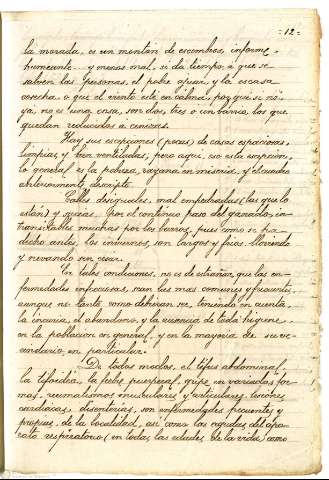 = 12 =
la morada, es un montón de escombros, informe,
humeante y menos mal, si da tiempo, á que se
salven las personas, el pobre ajuar y la escasa
cosecha o que el viento esté en calma, por que si no
ya, no es una casa, son dos, tres o un barrio, los que
quedan reducidos á cenizas.
Hay sus escepciones (pocas) de casas espaciosas,
limpias y bien ventiladas; pero aquí, eso es la escepcion,
lo general es la pobreza, rayana en miseria, y el cuadro
anteriormente descripto.
Calles desiguales, mal empedradas (las que lo
están) y sucias. Por el continuo paso del ganado, in-
transitables muchas por los barros, pues como se ha
dicho antes, los inviernos, son largos y frios lloviendo
y nevando sin cesar.
En tales condiciones, no es de estrañar, que las en-
fermedades infecciosas, sean las mas comunes y frecuentes,
aunque no tanto como debieran ser, teniendo en cuenta,
la incuria, el abandono, y la ausencia de toda higiene,
en la población en general, y en la mayoria de su ve-
cindario, en particular.
De todos modos, el tífus abdominal,
la tifoidea, la fiebre puerperal, gripe, en variadas for-
mas, reumatismos musculares y articulares, lesiones
cardiacas, disenterias, son enfermedades frecuentes y
propias, de la localidad, así como las agudas del apa-
rato respiratorio (en todas las edades de la vida) como